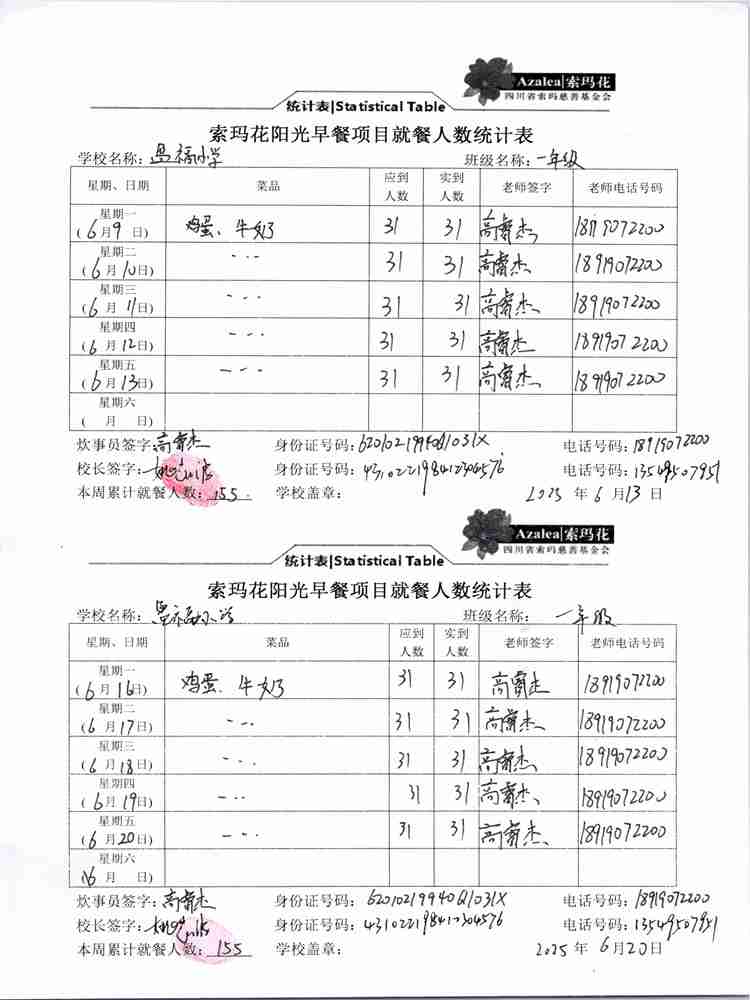 Azalea|索玛花
四川省索玛慈善基金会
统计表|Statistical Table
索玛花阳光早餐项目就餐人数统计表
学校名称: 福小学 班级名称: 一年级
星期、日期 菜品 应到人数 实到人数 老师签字 老师电话号码
星期一 (6月9日) 鸡蛋、牛奶 31 31 18919072200
星期二 (6月10日) 31 31 18919072200
星期三 (6月11日) 31 31 18919072200
星期四 (6月12日) 31 31 18919072200
星期五 (6月13日) 31 31 18919072200
星期六 (月 日)
炊事员签字: 身份证号码: 电话号码: 18919072200
校长签字: 身份证号码: 电话号码: 13549507951
本周累计就餐人数: 155 学校盖章: 2025年6月13日
Azalea|索玛花
四川省索玛慈善基金会
统计表|Statistical Table
索玛花阳光早餐项目就餐人数统计表
学校名称: 班级名称: 一年级
星期、日期 菜品 应到人数 实到人数 老师签字 老师电话号码
星期一 (6月16日) 鸡蛋、牛奶 31 31 18919072200
星期二 (6月17日) 31 31 18919072200
星期三 (6月18日) 31 31 18919072200
星期四 (6月19日) 31 31 18919072200
星期五 (6月20日) 31 31 18919072200
星期六 (6月 日)
炊事员签字: 身份证号码: 电话号码: 18919072200
校长签字: 身份证号码: 电话号码: 13549507951
本周累计就餐人数: 155 学校盖章: 2025年6月20日